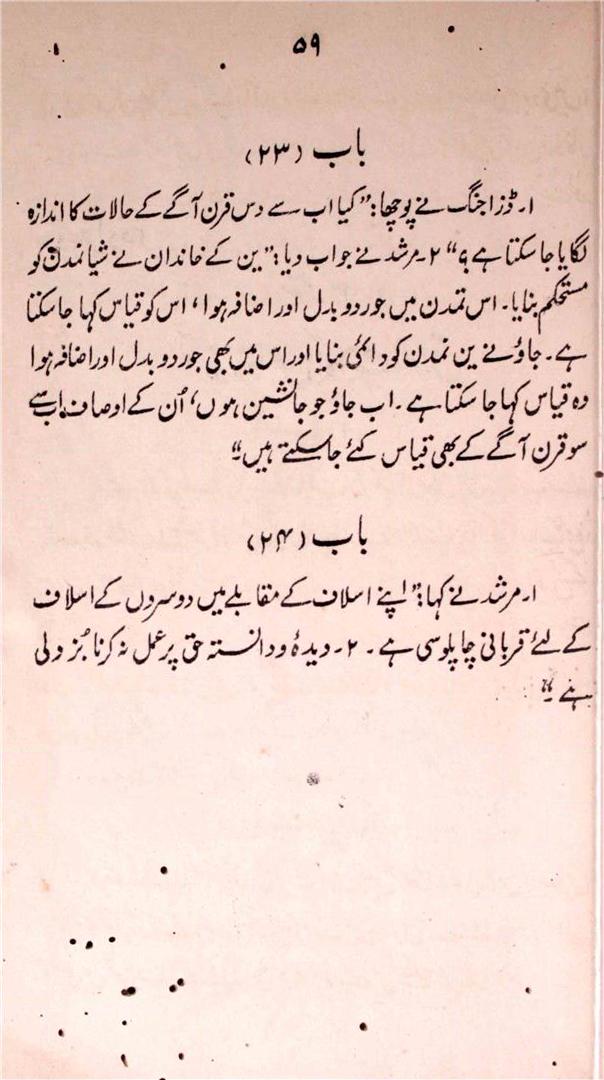 ۵۹
باب (۲۳)
۱۔ ڈزاجنگ نے پوچھا: ”کیا اب سے دس قرن آگے کے حالات کا اندازہ
لگایا جا سکتا ہے؟“ ۲۔ مرشد نے جواب دیا: ”ین کے خاندان نے شیا تمدن کو
مستحکم بنایا۔ اس تمدن میں جو ردو بدل اور اضافہ ہوا، اس کو قیاس کہا جا سکتا
ہے۔ جاؤ نے ین تمدن کو دائمی بنایا اور اس میں بھی جو ردو بدل اور اضافہ ہوا
وہ قیاس کہا جا سکتا ہے۔ اب جاؤ جو جانشین ہوں، اُن کے اوصاف اب سے
سو قرن آگے کے بھی قیاس کئے جا سکتے ہیں۔“
باب (۲۴)
۱۔ مرشد نے کہا: ”اپنے اسلاف کے مقابلے میں دوسروں کے اسلاف
کے لئے قربانی چاپلوسی ہے۔ ۲۔ دیدۂ و دانستہ حق پر عمل نہ کرنا بُزدلی
ہے۔“